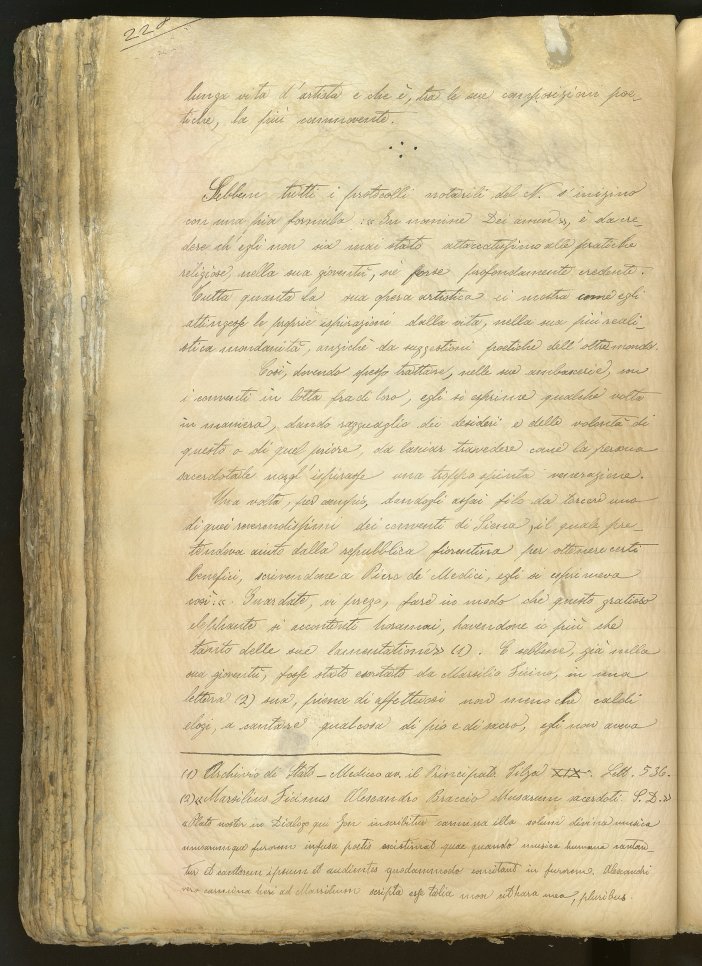 228
lunga vita d'artista e che è, tra le sue composizioni poe-
tiche, la più commovente.
Sebbene tutti i protocolli notarili del N. s'inizino
con una pia formula: « In nomine Dei amen », è da cre-
dere ch'egli non sia mai stato attaccatissimo alle pratiche
religiose nella sua gioventù, nè forse profondamente credente.
Tutta quanta la sua opera artistica ci mostra come egli
attingesse le proprie ispirazioni dalla vita, nella sua più reali-
stica mondanità, anzichè da suggestioni poetiche dell'oltremondo.
Così, dovendo spesso trattare, nelle sue ambascerie, con
i conventi in lotta fra di loro, egli si esprime qualche volta
in maniera, dando ragguaglio dei desideri e delle volontà di
questo o di quel priore, da lasciar travedere come la persona
sacerdotale non gl'ispirasse una troppo spinta venerazione.
Una volta, per esempio, dandogli assai filo da torcere uno
di quei reverendissimi dei conventi di Siena, il quale pre-
tendeva aiuto dalla repubblica fiorentina per ottenere certi
benefici, scrivendone a Piero de' Medici, egli si esprimeva
così: « Guardate, vi prego, fare in modo che questo gratioso
si accontenti horamai, havendone io più che
tanto delle sue lamentationi » (1). E sebbene, già nella
sua gioventù, fosse stato esortato da Marsilio Ficino, in una
lettera (2) sua, piena di affettuosi non meno che caldi
elogi, a cantare qualcosa di pio e di sacro, egli non aveva
(1) Archivio di Stato - Mediceo av. il Principato. Filza XIX. Lett. 536.
(2) « Marsilius Ficinus Alexandro Braccio Musarum sacerdoti S.D. »
« Plato noster in Dialogo qui Ion inscribitur carmina illa solum divina musica
musarumque furorem infusa poetis existimat quae quando musica humana cantan-
tur et cantorem ipsum et audientes quodammodo concitant in furorem. Alexandri
vero carmina heri ad Marsilium scripta esse talia mox cithara mea, pluribus